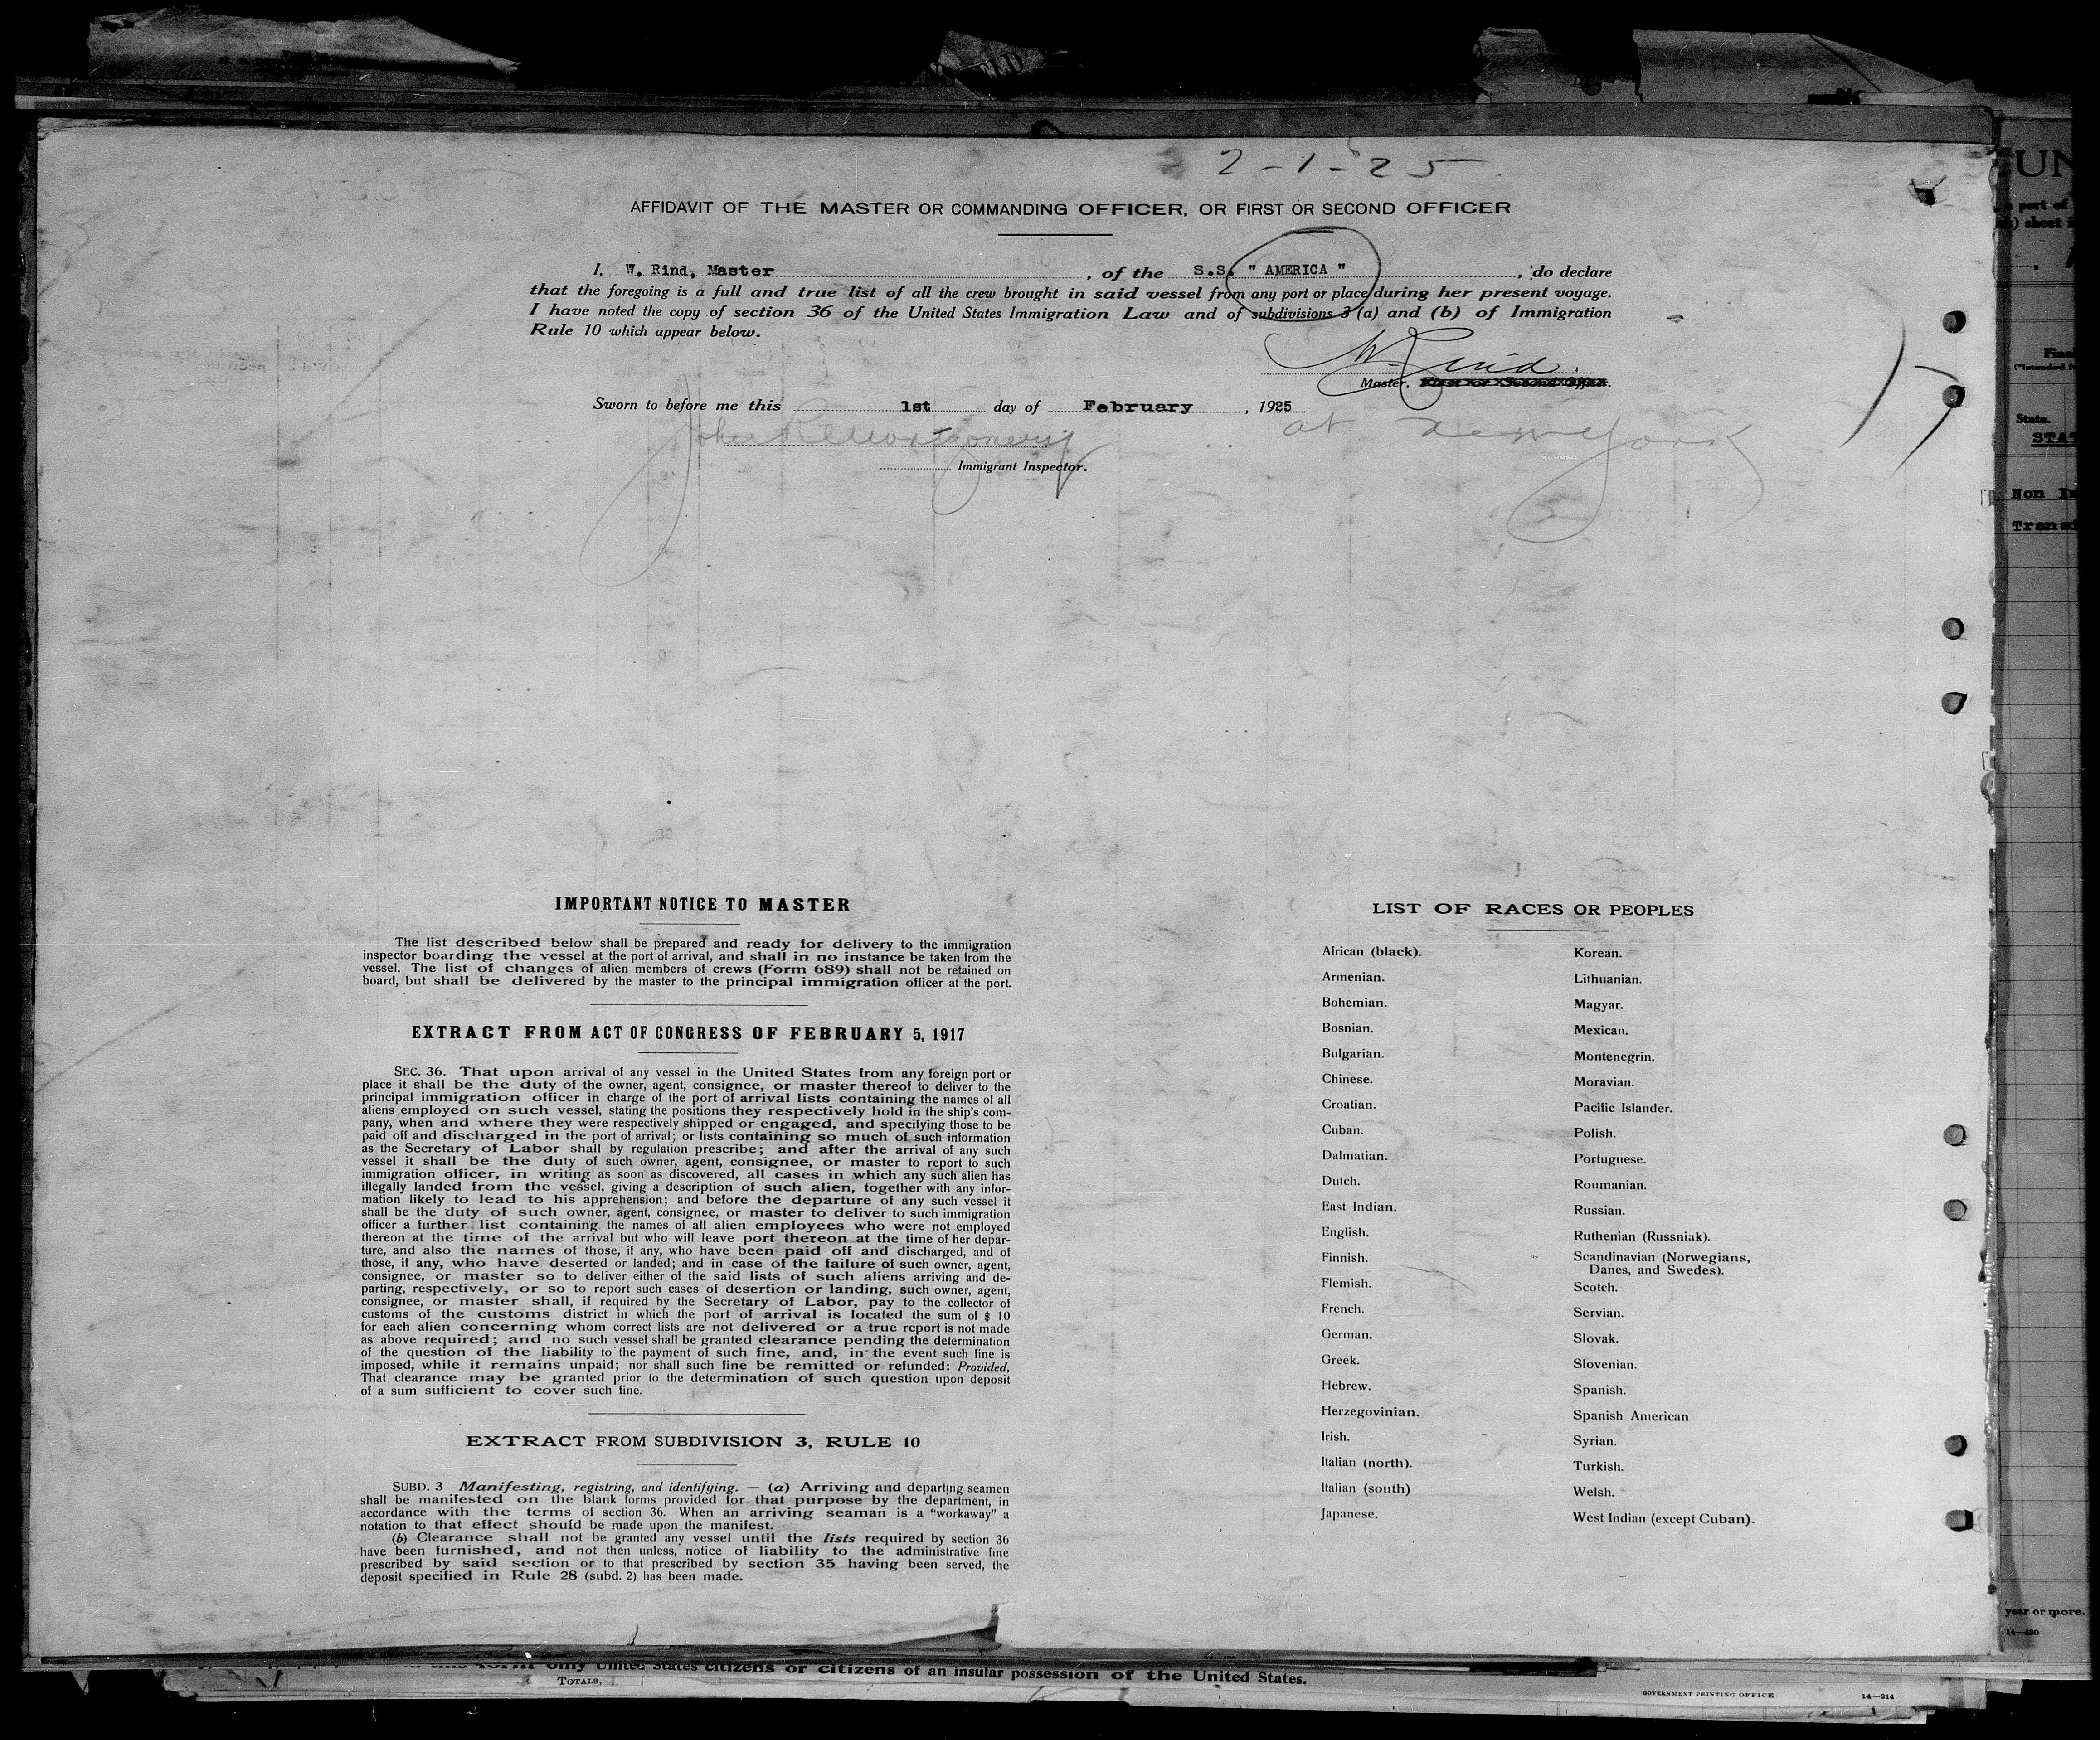 2-1-25
AFFIDAVIT OF THE MASTER OR COMMANDING OFFICER, OR FIRST OR SECOND OFFICER
I, W. Rind, Master, of the S.S. " AMERICA ", do declare
that the foregoing is a full and true list of all the crew brought in said vessel from any port or place during her present voyage.
I have noted the copy of section 36 of the United States Immigration Law and of subdivisions 3 (a) and (b) of Immigration
Rule 10 which appear below.
W. Rind.
Master, First or Second Officer.
Sworn to before me this 1st day of February, 1925
at New York
John Montgomery
Immigrant Inspector.
IMPORTANT NOTICE TO MASTER
The list described below shall be prepared and ready for delivery to the immigration
inspector boarding the vessel at the port of arrival, and shall in no instance be taken from the
vessel. The list of changes of alien members of crews (Form 689) shall not be retained on
board, but shall be delivered by the master to the principal immigration officer at the port.
EXTRACT FROM ACT OF CONGRESS OF FEBRUARY 5, 1917
SEC. 36. That upon arrival of any vessel in the United States from any foreign port or
place it shall be the duty of the owner, agent, consignee, or master thereof to deliver to the
principal immigration officer in charge of the port of arrival lists containing the names of all
aliens employed on such vessel, stating the positions they respectively hold in the ship's com-
pany, when and where they were respectively shipped or engaged, and specifying those to be
paid off and discharged in the port of arrival; or lists containing so much of such information
as the Secretary of Labor shall by regulation prescribe; and after the arrival of any such
vessel it shall be the duty of such owner, agent, consignee, or master to report to such
immigration officer, in writing as soon as discovered, all cases in which any such alien has
illegally landed from the vessel, giving a description of such alien, together with any infor-
mation likely to lead to his apprehension; and before the departure of any such vessel it
shall be the duty of such owner, agent, consignee, or master to deliver to such immigration
officer a further list containing the names of all alien employees who were not employed
thereon at the time of the arrival but who will leave port thereon at the time of her depar-
ture, and also the names of those, if any, who have been paid off and discharged, and of
those, if any, who have deserted or landed; and in case of the failure of such owner, agent,
consignee, or master so to deliver either of the said lists of such aliens arriving and de-
parting, respectively, or so to report such cases of desertion or landing, such owner, agent,
consignee, or master shall, if required by the Secretary of Labor, pay to the collector of
customs of the customs district in which the port of arrival is located the sum of $ 10
for each alien concerning whom correct lists are not delivered or a true report is not made
as above required; and no such vessel shall be granted clearance pending the determination
of the question of the liability to the payment of such fine, and, in the event such fine is
imposed, while it remains unpaid; nor shall such fine be remitted or refunded: Provided,
That clearance may be granted prior to the determination of such question upon deposit
of a sum sufficient to cover such fine.
EXTRACT FROM SUBDIVISION 3, RULE 10
SUBD. 3 Manifesting, registring, and identifying. — (a) Arriving and departing seamen
shall be manifested on the blank forms provided for that purpose by the department, in
accordance with the terms of section 36. When an arriving seaman is a "workaway" a
notation to that effect should be made upon the manifest.
(b) Clearance shall not be granted any vessel until the lists required by section 36
have been furnished, and not then unless, notice of liability to the administrative fine
prescribed by said section or to that prescribed by section 35 having been served, the
deposit specified in Rule 28 (subd. 2) has been made.
LIST OF RACES OR PEOPLES
African (black).
Armenian.
Bohemian.
Bosnian.
Bulgarian.
Chinese.
Croatian.
Cuban.
Dalmatian.
Dutch.
East Indian.
English.
Finnish.
Flemish.
French.
German.
Greek.
Hebrew.
Herzegovinian.
Irish.
Italian (north).
Italian (south)
Japanese.
Korean.
Lithuanian.
Magyar.
Mexican.
Montenegrin.
Moravian.
Pacific Islander.
Polish.
Portuguese.
Roumanian.
Russian.
Ruthenian (Russniak).
Scandinavian (Norwegians,
Danes, and Swedes).
Scotch.
Servian.
Slovak.
Slovenian.
Spanish.
Spanish American
Syrian.
Turkish.
Welsh.
West Indian (except Cuban).
only United States citizens or citizens of an insular possession of the United States.
TOTALS,
GOVERNMENT PRINTING OFFICE
14—214
part of
sheet
State.
Non
year or more.